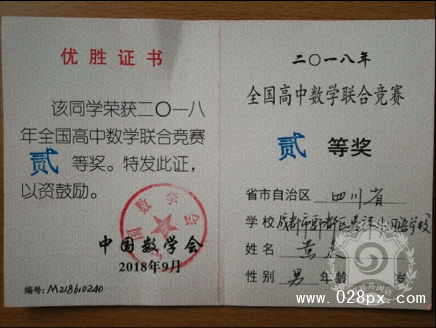 优胜证书
该同学荣获二〇一八
年全国高中数学联合竞赛
贰 等奖。特发此证，
以资鼓励。
中国数学会
2018年9月
编号:M218610240
二〇一八年
全国高中数学联合竞赛
贰 等奖
省市自治区 四川省
学校 成都市郫都区 外国语学校
姓名
性别 男 年龄 岁
www.028px.com